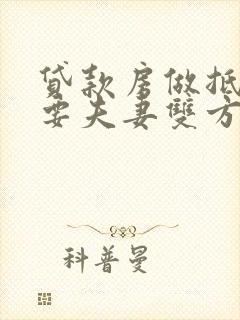 貸款房做抵
要夫妻雙方
科普曼